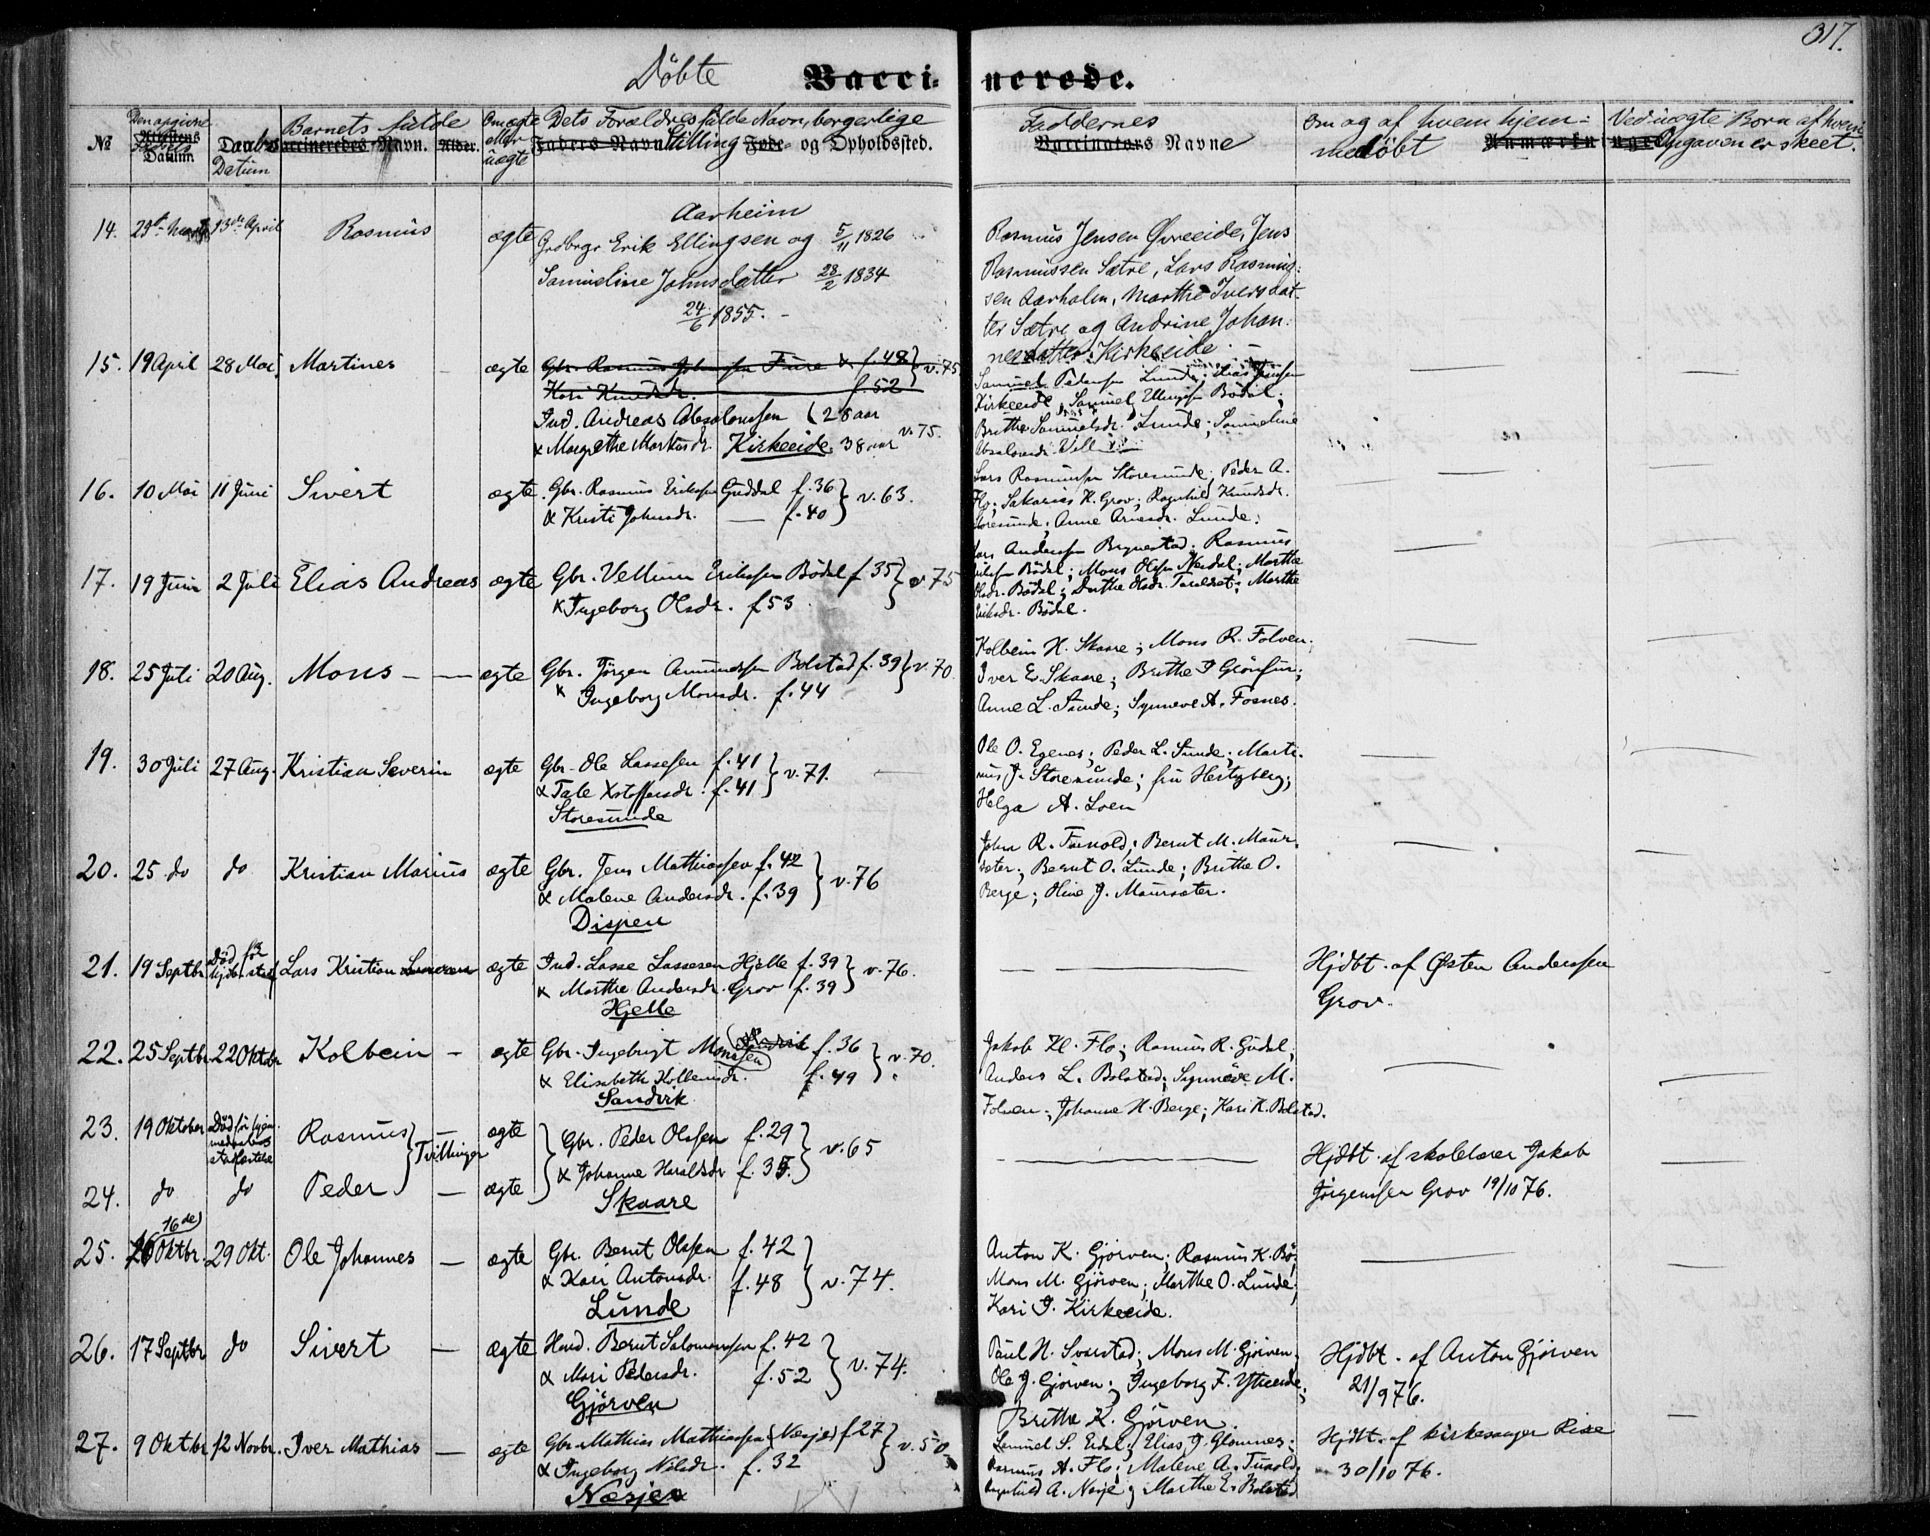 317.
Døbte Vaccinerede.
№
Den opgivne
Attestens
Datum.
Daabs
Datum
Barnets fulde
Vaccineredes Navn.
Alder.
Om ægte
eller
uægte
Dets Forældres fulde Navn, borgerlige
Faders Navn Stilling Føde- og Opholdssted.
Faddernes
Vaccinators Navne
Om og af hvem hjem-
medøbt
Anmærkninger
Ved uægte Børn af hvem
Opgaven er skeet.
14. 29de Marts 13de April Rasmus ægte
Aarheim
Grdbrgr Erik Ellingsen og 5/11 1826
Samueline Johnsdatter 28/2 1834
24/6 1855.
Rasmus Jensen Øvreeide, Jens
Rasmussen Sætre, Lars Rasmus-
sen Aarholen, Marthe Iversdat-
ter Sætre og Andrine Johan-
nesdatter Kirkeeide.
15. 19 April 28 Mai Martines ægte
Gbr. Rasmus Johnsen Fure & f. 48 } v. 75
Kari Knudsdr. f. 52
Ind. Andreas Absalonsen (28 aar
& Margrethe Markusdr. Kirkeeide 38 aar v. 75.
Samuel Pedersen Lunde; Elias Jensen
Kirkeeide; Samuel Ellingsen Bödal;
Brithe Samuelsdr. Lunde; Samueline
Absalonsdr.
16. 10 Mai 11 Juni Sivert ægte
Gbr. Rasmus Eriksen Guddal f. 36 } v. 63.
& Kristi Johnsdr. — f. 40
Lars Rasmussen Storesunde; Peder A.
Flo; Sakarias H. Grov; Ragnhild Knudsdr.
Storesunde; Anne Arnesdr. Lunde;
17. 19 Juni 2 Juli Elias Andreas ægte
Gbr. Vellum Eriksen Bödal f 35 } v 75
& Ingeborg Olsdr. f 53.
Lars Andersen Brynestad. Rasmus
Eriksen Bödal; Mons Olsen Nesdal; Marthe
Olsdr. Bödal; Dorthe Olsdr. Tuneldset; Marthe
Eriksdr. Bödal.
18. 25 Juli 20 Aug. Mons — — ægte
Gbr. Jörgen Amundsen Bolstad f. 39 } v. 70.
& Ingeborg Monsdr. f. 44
Kolbein H. Skaare; Mons R. Folven;
Iver E. Skaare; Brithe I Grönfur;
Anne L. Sunde; Synneve A. Fosnes.
19. 30 Juli 27 Aug. Kristian Severin ægte
Gbr. Ole Lassesen f. 41 } v. 71.
& Tale Xstoffersdr. f. 41
Storesunde
Ole O. Egenes; Peder L. Sunde; Marti-
nus J. Storesunde; fru Hertzberg;
Helga A. Loen
20. 25 do do Kristian Marius ægte
Gbr. Jens Mathiassen f. 42 } v. 76
& Malene Andersdr. f. 39
Dispen
John R. Tunold; Bernt M. Maur-
sæter; Bernt O. Lunde; Brithe O.
Berge; Oline J. Maursæter.
21. 19 Septbr. Död før
hjdb. stadf. Lars Kristian ægte
Ind. Lasse Lassesen Hjelle f. 39 } v. 76.
& Marthe Andersdr. Grov f. 39
Hjelle
Hjdbt. af Østen Andersen
Grov.
22. 25 Septbr. 22 Oktbr Kolbein — ægte
Gbr. Ingebrigt Monssen f. 36 } v. 70.
& Elisabeth Kolbeinsdr. f. 49
Sandvik
Jakob Kl. Flo; Rasmus R. Gudal;
Anders L. Bolstad; Synnöve M.
Folven; Johanne H. Berge; Kari K. Bolstad.
23. 19 Oktober Död før hjem-
medaabens
stadfæstelse Rasmus } Tvillinger — ægte
Gbr. Peder Olssen f. 29 } v. 65
& Johanne Haraldsdr f. 35.
24. do do Peder — ægte
Skaare
Hjdbt. af skolelærer Jakob
Jörgensen Grov 19/10 76.
25. 16de
Oktbr. 29 Okt. Ole Johannes — ægte
Gbr. Bernt Olssen f. 42 } v. 74.
& Kari Antonsdr. f. 48
Lunde
Anton K. Gjörven; Rasmus K. Bö;
Mons M. Gjörven; Marthe O. Lunde;
Kari J. Kirkeeide.
26. 17 Septbr do Sivert — ægte
Husd. Bernt Salomonsen f. 42 } v. 74.
& Mari Pedersdr. f. 52
Gjörven
Paul H. Svarstad; Mons M. Gjörven;
Ole J. Gjörven; Ingeborg F. Ytreeide;
Brithe K. Gjörven.
Hjdbt. af Anton Gjörven
21/9 76.
27. 9 Oktbr. 12 Novbr. Iver Mathias — ægte
Gbr. Mathias Mathiassen (Nesje) f 27 } v. 50.
& Ingeborg Nilsdr. f. 32
Nesje
Samuel S. Eidel; Elias J. Glomnes;
Rasmus A. Flo; Malene A. Tunold;
Ragnhild A. Nesje; Marthe E. Bolstad
Hjdbt. af kirkesanger Rise
30/10 76.